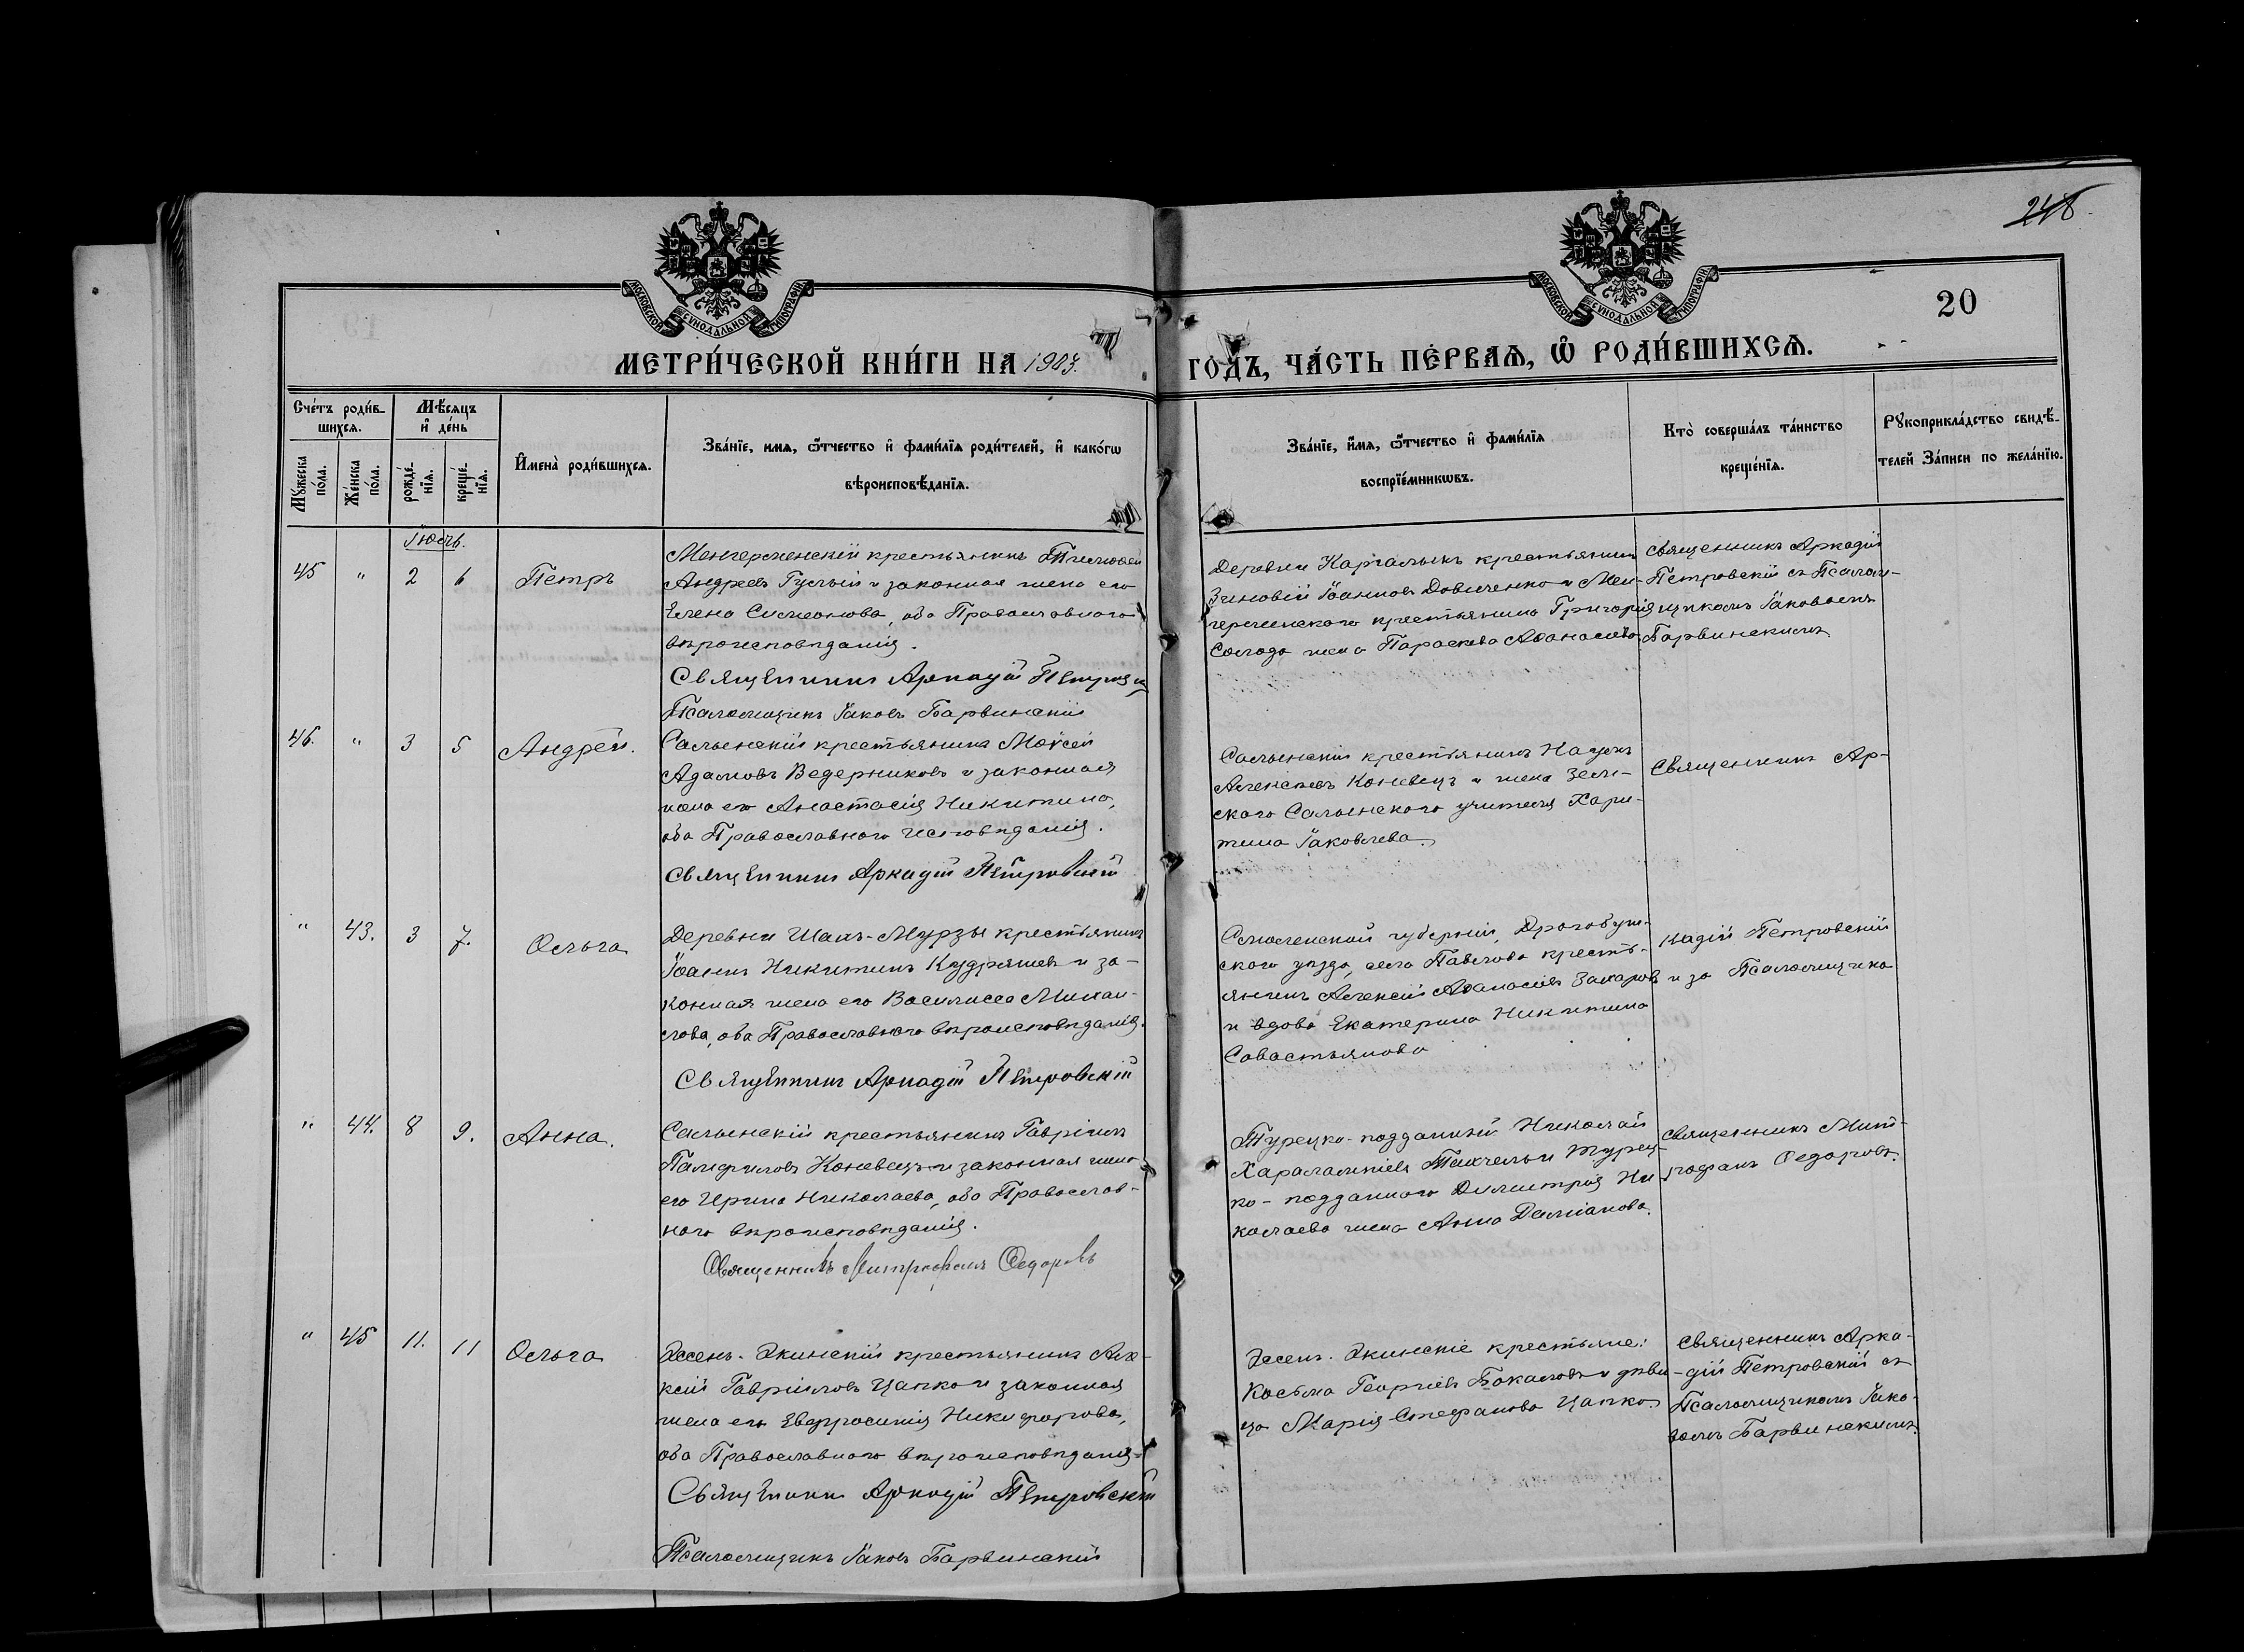 248.
МОСКОВСКОЙ СѴНОДАЛЬНОЙ ТИПОГРАФІИ
МОСКОВСКОЙ СѴНОДАЛЬНОЙ ТИПОГРАФІИ
20
МЕТРИ́ЧЕСКОЙ КНИ́ГИ НА 1903 ГОДЪ, ЧА́СТЬ ПЕ́РВАѦ, Ѡ҆ РОДИ́ВШИХСѦ.
Сче́тъ роди́в-
шихсѧ.
Мꙋ́жеска
по́ла.
Же́нска
по́ла.
Мѣ́сѧцъ
и҆ де́нь
рожде́-
нїѧ.
креще́-
нїѧ.
И҆мена̀ роди́вшихсѧ.
Зва́нїе, имѧ, ѻ҆́тчество и҆ фами́лїѧ роди́телей, и҆ како́гѡ
вѣроисповѣ́данїѧ.
Зва́нїе, и҆́мѧ, ѻ҆́тчество и҆ фами́лїѧ
воспрїе́мникѡвъ.
Кто̀ соверша́лъ та́инство
креще́нїѧ.
Рꙋкоприкла́дство свидѣ́-
телей За́писи по жела́нїю.
Іюль.
45 " 2 6 Петръ
Менгерменскій крестьянинъ Тимофей
Андреевъ Гуслый и законная жена его
Елена Симеонова, оба Православнаго
вѣроисповѣданія.
Священникъ Аркадій Петровскій
Псаломщикъ Іаковъ Барвинскій
Деревни Каргалыкъ крестьянинъ
Зиновій Іоанновъ Довиченко и Мен-
герменскаго крестьянина Григорія
Солода жена Параскева Аѳанасіева
Священникъ Аркадій
Петровскій съ Псалом-
щикомъ Іаковомъ
Барвинскимъ
46. " 3 5 Андрей.
Салынскій крестьянинъ Моѵсей
Адамовъ Ведерниковъ и законная
жена его Анастасія Никитина,
оба Православнаго исповѣданія.
Священникъ Аркадій Петровскій
Салынскій крестьянинъ Наумъ
Алексѣевъ Коневецъ и жена Зем-
скаго Салынскаго учителя Хари-
тина Іаковлева.
Священникъ Ар-
" 43. 3 7. Ольга
Деревни Шахъ-Мурзы крестьянинъ
Іоаннъ Никитинъ Кудряшевъ и за-
конная жена его Василисса Михаи-
лова, оба Православнаго вѣроисповѣданія.
Священникъ Аркадій Петровскій
Смоленской губерніи, Дорогобуж-
скаго уѣзда, села Павлова кресть-
янинъ Алексій Аѳанасіевъ Захаровъ
и вдова Екатерина Никитина
Савастьянова
кадій Петровскій
и за Псаломщика
" 44. 8 9. Анна.
Салынскій крестьянинъ Гавріилъ
Памфиловъ Коневецъ и законная жена
его Ирина Николаева, оба Православ-
наго вѣроисповѣданія.
Священникъ Митрофанъ Ѳедоровъ
Турецко-подданный Николай
Харалампіевъ Такчельи Турец-
ко-подданнаго Димитрія Ни-
колаева жена Анна Даміанова.
Священникъ Мит-
рофанъ Ѳедоровъ.
" 45 11. 11 Ольга
Эссенъ-Экинскій крестьянинъ Але-
ксій Гавріиловъ Цапко и законная
жена его Евфросинія Никифорова,
оба Православнаго вѣроисповѣданія.
Священникъ Аркадій Петровскій
Псаломщикъ Іаковъ Барвинскій
Эссенъ-Экинскіе крестьяне:
Косьма Георгіевъ Бокаловъ и дѣви-
ца Марія Стефанова Цапко.
Священникъ Арка-
дій Петровскій съ
Псаломщикомъ Іако-
вомъ Барвинскимъ.